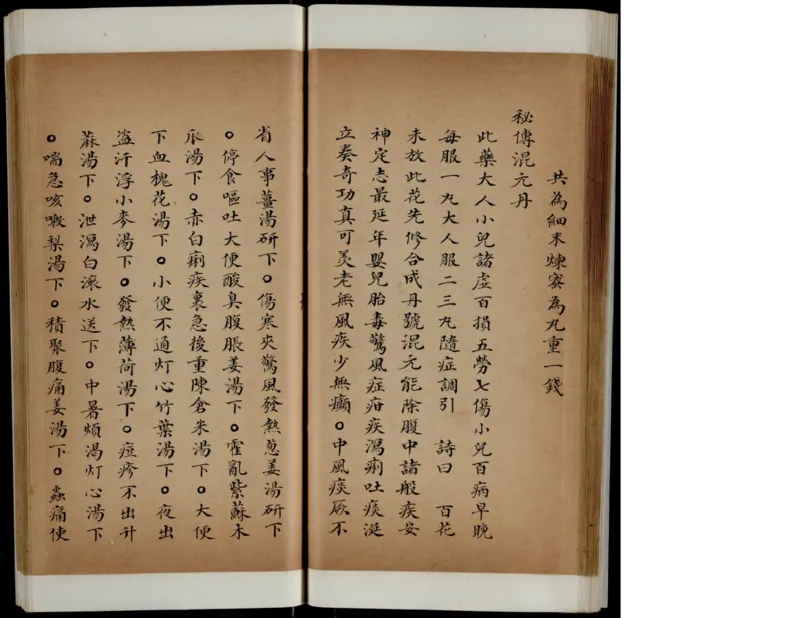 共為細末煉蜜為丸重一錢
秘傳混元丹
此藥大人小兒諸虛百損五勞七傷小兒百病早晚
每服一丸大人服二三丸隨症調引 詩曰 百花
未放此花先修合成丹號混元能除腹中諸般疾安
神定志最延年嬰兒胎毒驚風症疳疾瀉痢吐痰涎
立奏奇功真可羡老無風疾少無癲○中風痰厥不
省人事薑湯研下○傷寒夾驚風發熱葱姜湯研下
○停食嘔吐大便酸臭腹脹姜湯下○霍亂紫蘇木
瓜湯下○赤白痢疾裏急後重陳倉米湯下○大便
下血槐花湯下○小便不通灯心竹葉湯下○夜出
盜汗浮小麥湯下○發熱薄荷湯下○痘疹不出升
蔴湯下○泄瀉白滾水送下○中暑煩渴灯心湯下
○喘急咳嗽梨湯下○積聚腹痛姜湯下○蟲痛使